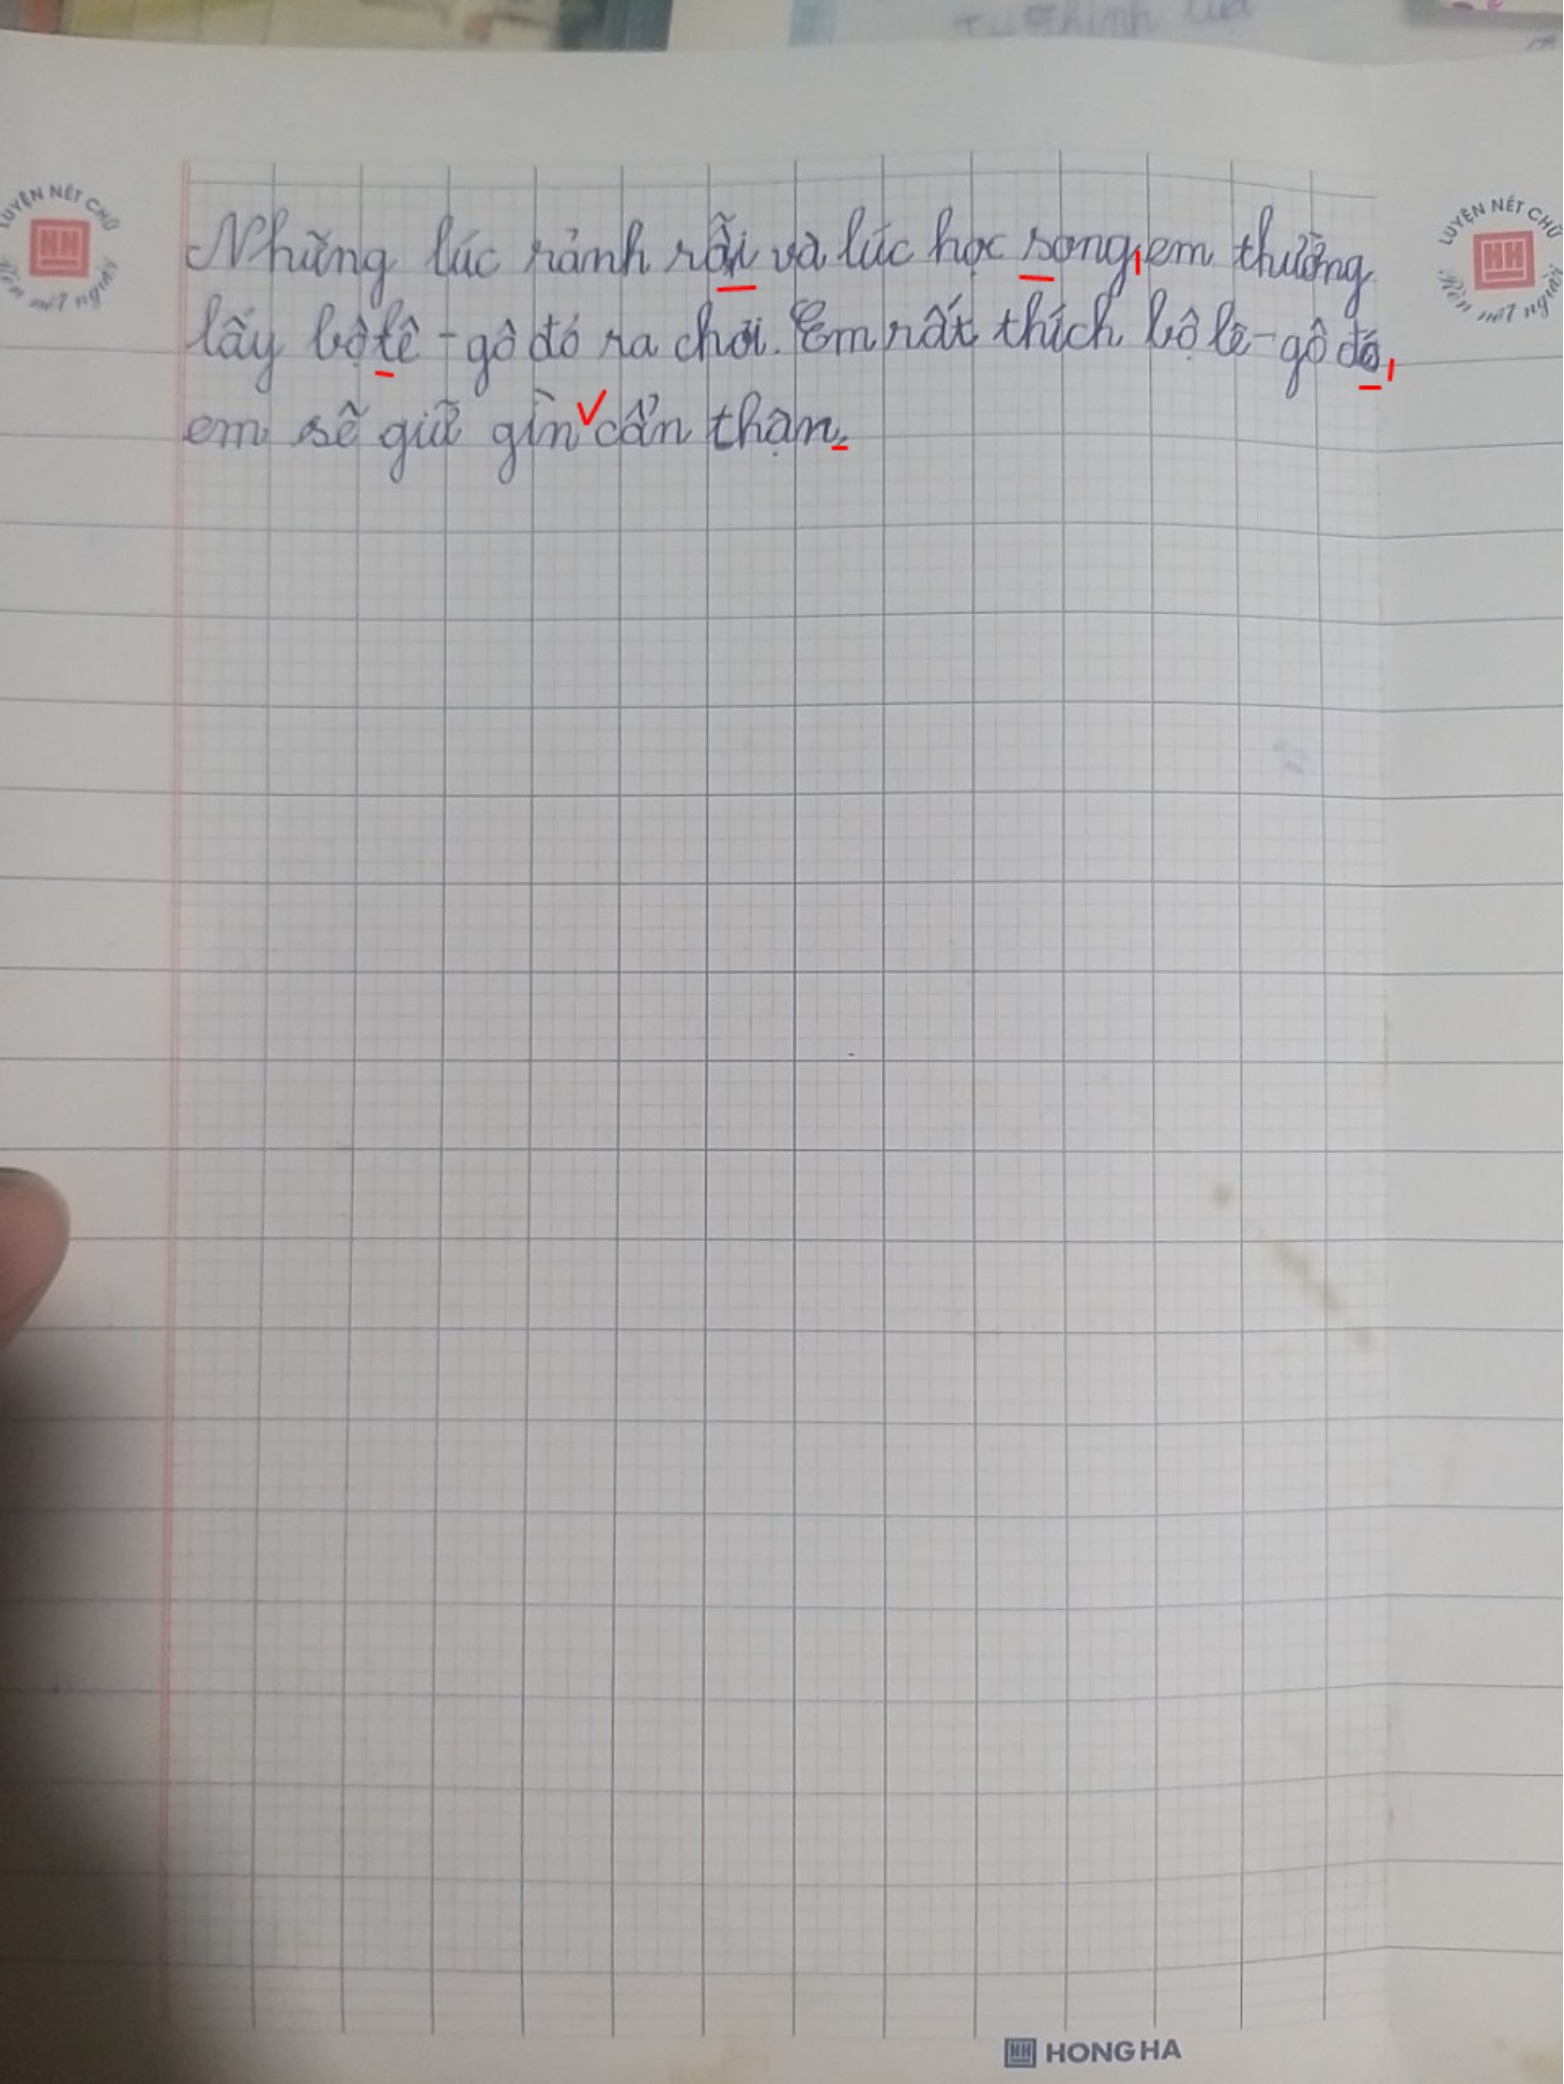 Tự chỉnh
LUYỆN NÉT CHỮ
Rèn nết người
LUYỆN NÉT CHỮ
Rèn nết người
Những lúc rảnh rỗi và lúc học song, em thường
lấy bộ lê-gô đó ra chơi. Em rất thích bộ lê-gô đó,
em sẽ giữ gìn cẩn thạn.
HONG HA